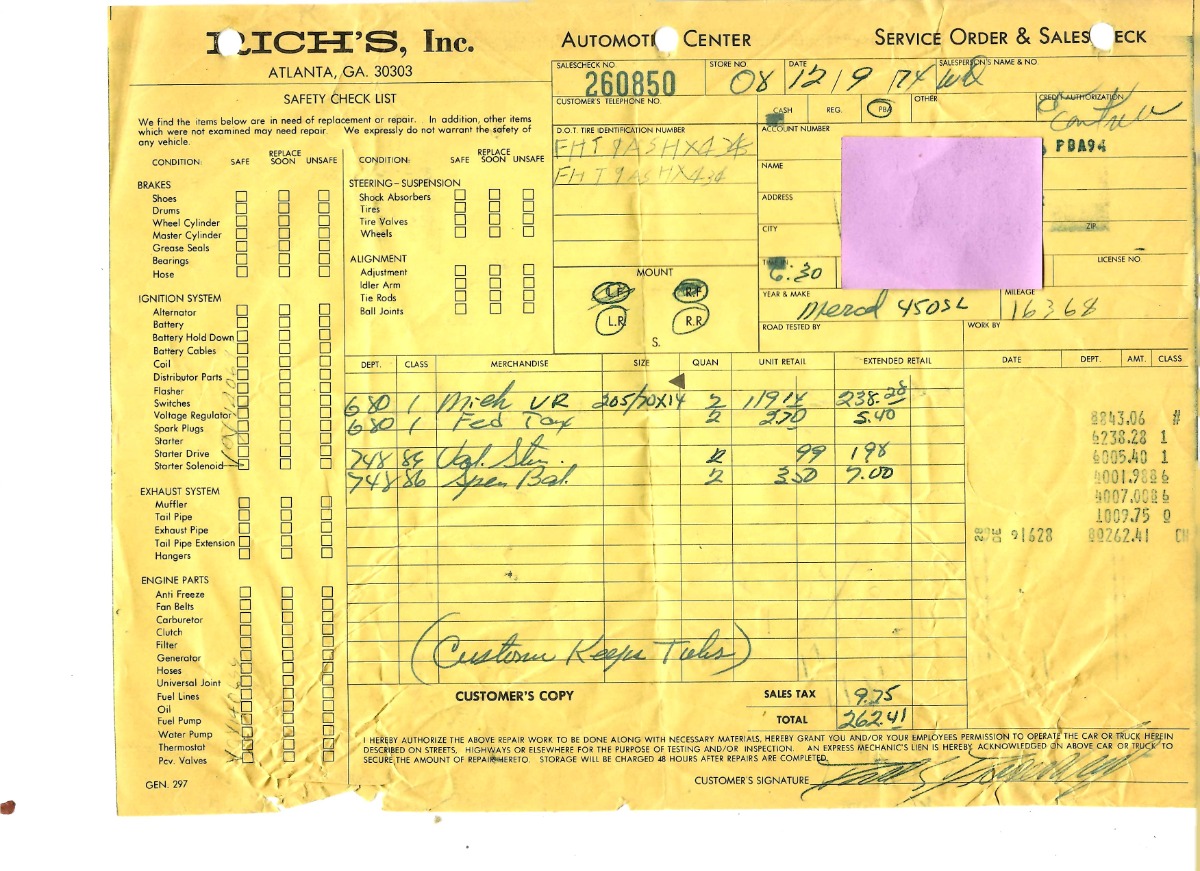 RICH'S, Inc.
ATLANTA, GA. 30303
AUTOMOTIVE CENTER
SERVICE ORDER & SALESCHECK
SAFETY CHECK LIST
We find the items below are in need of replacement or repair. In addition, other items
which were not examined may need repair. We expressly do not warrant the safety of
any vehicle.
CONDITION: SAFE REPLACE SOON UNSAFE
BRAKES
Shoes
Drums
Wheel Cylinder
Master Cylinder
Grease Seals
Bearings
Hose
IGNITION SYSTEM
Alternator
Battery
Battery Hold Down
Battery Cables
Coil
Distributor Parts
Flasher
Switches
Voltage Regulator
Spark Plugs
Starter
Starter Drive
Starter Solenoid
EXHAUST SYSTEM
Muffler
Tail Pipe
Exhaust Pipe
Tail Pipe Extension
Hangers
ENGINE PARTS
Anti Freeze
Fan Belts
Carburetor
Clutch
Filter
Generator
Hoses
Universal Joint
Fuel Lines
Oil
Fuel Pump
Water Pump
Thermostat
Pcv. Valves
GEN. 297
CONDITION: SAFE REPLACE SOON UNSAFE
STEERING-SUSPENSION
Shock Absorbers
Tires
Tire Valves
Wheels
ALIGNMENT
Adjustment
Idler Arm
Tie Rods
Ball Joints
SALESCHECK NO. 260850
STORE NO. 08
DATE 12/9/74
SALESPERSON'S NAME & NO.
CUSTOMER'S TELEPHONE NO.
CASH REG. PBA OTHER
CREDIT AUTHORIZATION
D.O.T. TIRE IDENTIFICATION NUMBER
FHT9ASHX434
FHT9ASHX434
ACCOUNT NUMBER
PBA94
NAME
ADDRESS
CITY
ZIP
TIME IN 6:30
LICENSE NO.
MOUNT
L.F. R.F.
L.R. R.R.
S.
YEAR & MAKE Merced 450SL
MILEAGE 16368
ROAD TESTED BY
WORK BY
DEPT. CLASS MERCHANDISE SIZE QUAN UNIT RETAIL EXTENDED RETAIL
680 1 Mich VR 205/70X14 2 119.14 238.28
680 1 Fed Tax 2 2.70 5.40
748 86 Val. Stm. 2 99 1.98
748 86 Spen Bal. 2 3.50 7.00
(Custom Keeps Tubes)
CUSTOMER'S COPY
SALES TAX 9.75
TOTAL 262.41
DATE DEPT. AMT. CLASS
8843.06 #
6238.28 1
6005.40 1
4001.98 86
4007.00 86
1009.75 0
28 DE 9 1628 80262.41 CH
I HEREBY AUTHORIZE THE ABOVE REPAIR WORK TO BE DONE ALONG WITH NECESSARY MATERIALS, HEREBY GRANT YOU AND/OR YOUR EMPLOYEES PERMISSION TO OPERATE THE CAR OR TRUCK HEREIN
DESCRIBED ON STREETS, HIGHWAYS OR ELSEWHERE FOR THE PURPOSE OF TESTING AND/OR INSPECTION. AN EXPRESS MECHANIC'S LIEN IS HEREBY ACKNOWLEDGED ON ABOVE CAR OR TRUCK TO
SECURE THE AMOUNT OF REPAIR HERETO. STORAGE WILL BE CHARGED 48 HOURS AFTER REPAIRS ARE COMPLETED.
CUSTOMER'S SIGNATURE